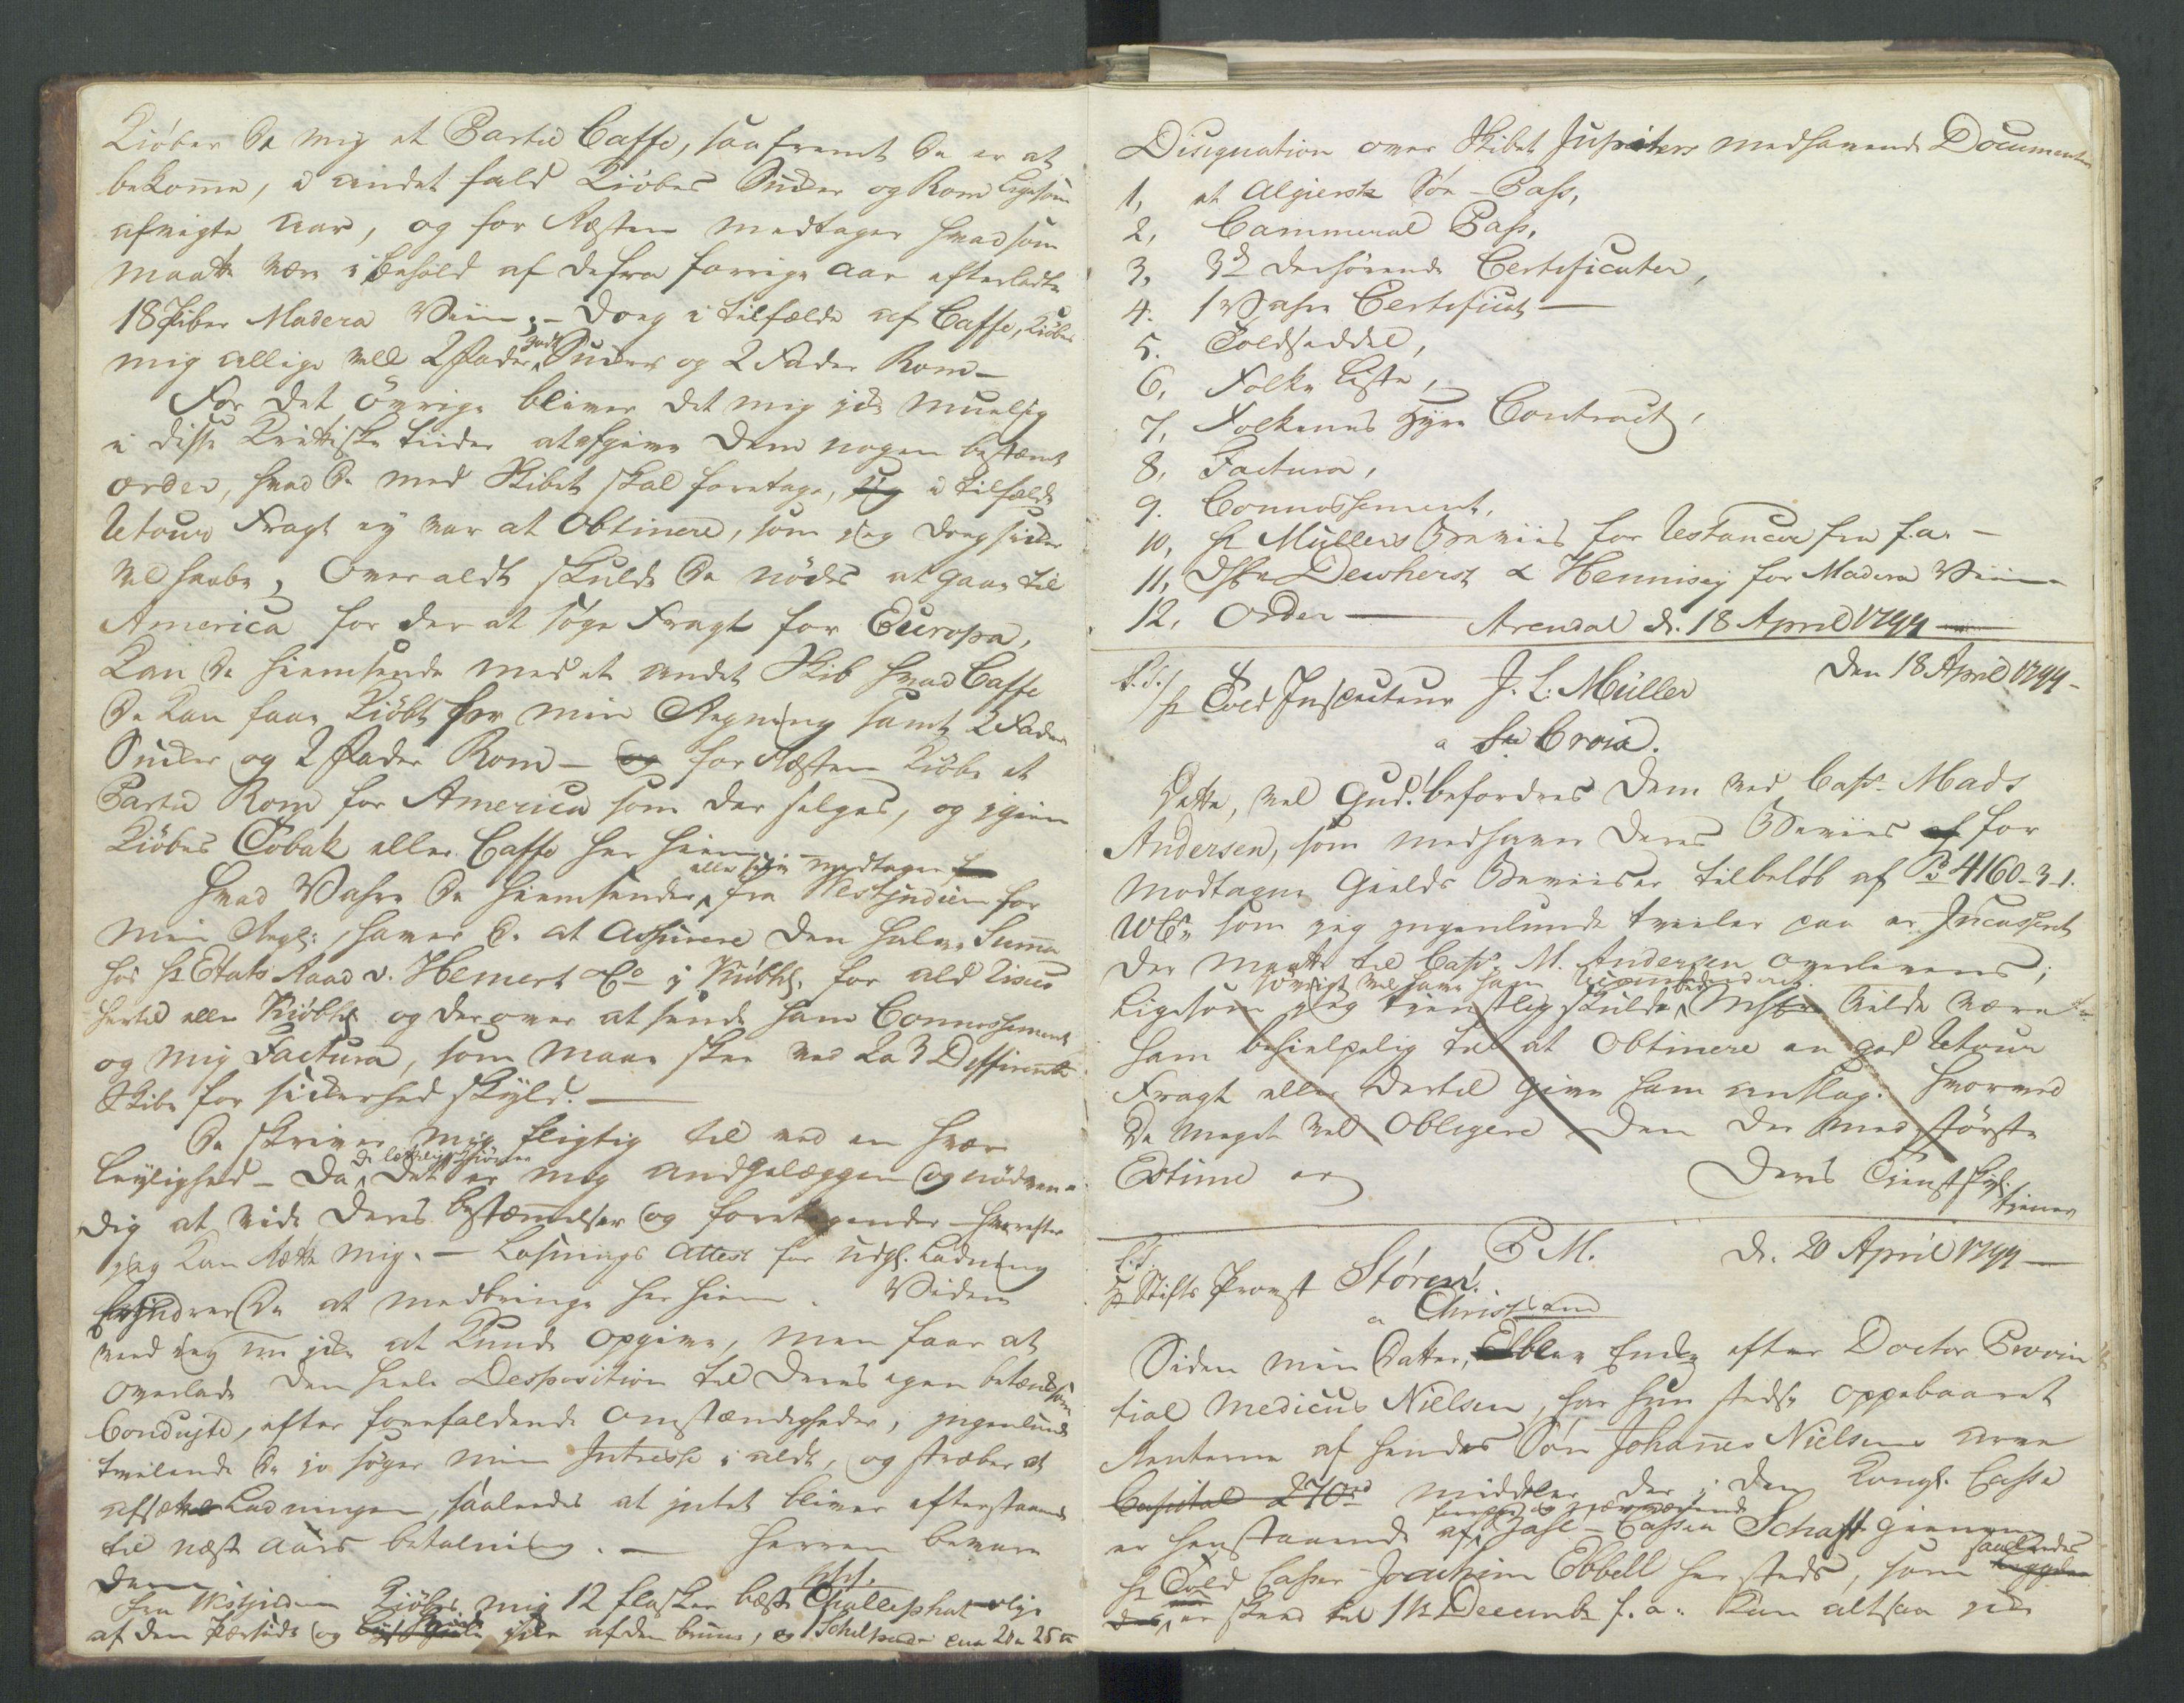 Kiöber De mig et Partie Caffe, saafremt De er at
bekomme, i andet fald Kiöbes Sucker og Rom ligesom
afvigte Aar, og for Resten medtager hvad som
maatte være i behold af defra forrige Aar efterladte
18 Piber Madera Viin; - Dog i tilfælde af Caffe, Kiöbes
mig allige vell 2 Fader gode Sucker og 2 Fader Rom -
For det övrige bliver det mig icke mueligt
i disse Kritiske tiider at afgive Dem nogen bestemt
order, hvad De med Skibet skal foretage, i tilfælde
Retour Fragt ey var at Obtinere, som jeg dog sicker
vil haabe, Overaldt skulde De nödes at gaae til
America for der at söge Fragt for Europa,
Kan De hiemsende med et andet Skib hvad Caffe
De Kan faae Kiöbt for min Regning samt 2 Fader
Sucker og 2 Fader Rom - og for Resten Kiöbe et
Partie Rom for America som der selges, og igien
Kiöbes Tobak eller Caffe her hiem -
eller selv medtager
Hvad Vahre De hiemsender fra Vestindien for
min Regh: haver De at Assurere den halve Summa
hos Hr Etats Raad v. Hemert & Co i Kiöbh: for ald Risico
hertil eller Kiöbh: og derover at sende ham Connossement
og mig Factura, som maae skee ved 2 a 3 Differente
Skibe for sickerhed skyld. —
De skriver mig fligtig til ved en hver
Leylighed - Da det er mig andgelæggen og nödven-
dig at vide Deres bestemmelser og foretagender - hvorefter
jeg Kan rette mig. - Losnings Attest for udgl. Ladning
De at medbringe her hiem. Videre
veed jeg nu icke at Kunde opgive, men faar at
overlade den heele Desposition til Deres egen betænksom
Condujte, efter forefaldende Omstændigheder, ingenlunde
tvilende De jo söger min Intresse i aldt, og stræber at
afsætte Ladningen saaledes at intet bliver efterstaaende
til næste Aars betalning. — Herren bevare
Dem
fra Kiöbes mig 12 flasker beste olje
af den og icke af den brune, og 1 Schel 20 a 25 ℔
Disignation over Skibet Jupiters medhavende Documenter
1, et Algiersk Söe-Pass,
2, Cammeral Pass,
3, 3de derhörende Certificater,
4. 1 Vahre Certificat —
5. Toldseddel,
6, Folke Liste,
7, Folkenes Hyre Contract,
8, Factura,
9. Connossement,
10, Hr Müllers Beviis for Restancer fra f. a. -
11, Dito Dewherst & Hennisey for Madera Viin -
12, Order — Arendal d. 18 April 1794 —
S. T. Den 18 April 1794 -
Hr Told Inspecteur J. L. Müller
a St Croix.
Dette, vel Gud! befordres Dem ved Capt. Mads
Andersen, som medhaver Deres Beviis af for
modtagne Gields Beviiser tilbeløb af Rd 4160-3-1.
WC. som jeg ingenlunde tveiler paa er Incasseret
der maatte til Capt. M. Andersen overleveres;
Ligesom jeg tienstlig skulde vilde være
ham behielpelig til at Obtinere en god Retour
Fragt eller dertil give ham anslag. hvorved
De meget vel Obligere Den der med störste
Estime er
Deres Tienstskyl:
tiener
S. T. P M. D. 20 April 1794 —
Hr Stifts Provst Stören
a Christsand
Siden min Datter, blev Enke efter Doctor Provin
tial Medicus Nielsen, har hun stedse oppebaaret
Renterne af hendes Sön Johannes Nielsens arve
Capital 270 rd midler der i den Kongl: Casse
er henstaaende af Zahl-Cassen Schaft gienem
Hr Told Casser Joachim Ebbell her steds, som saaledes
er skeed til 11te Decembr f. a. Kan altsaa icke